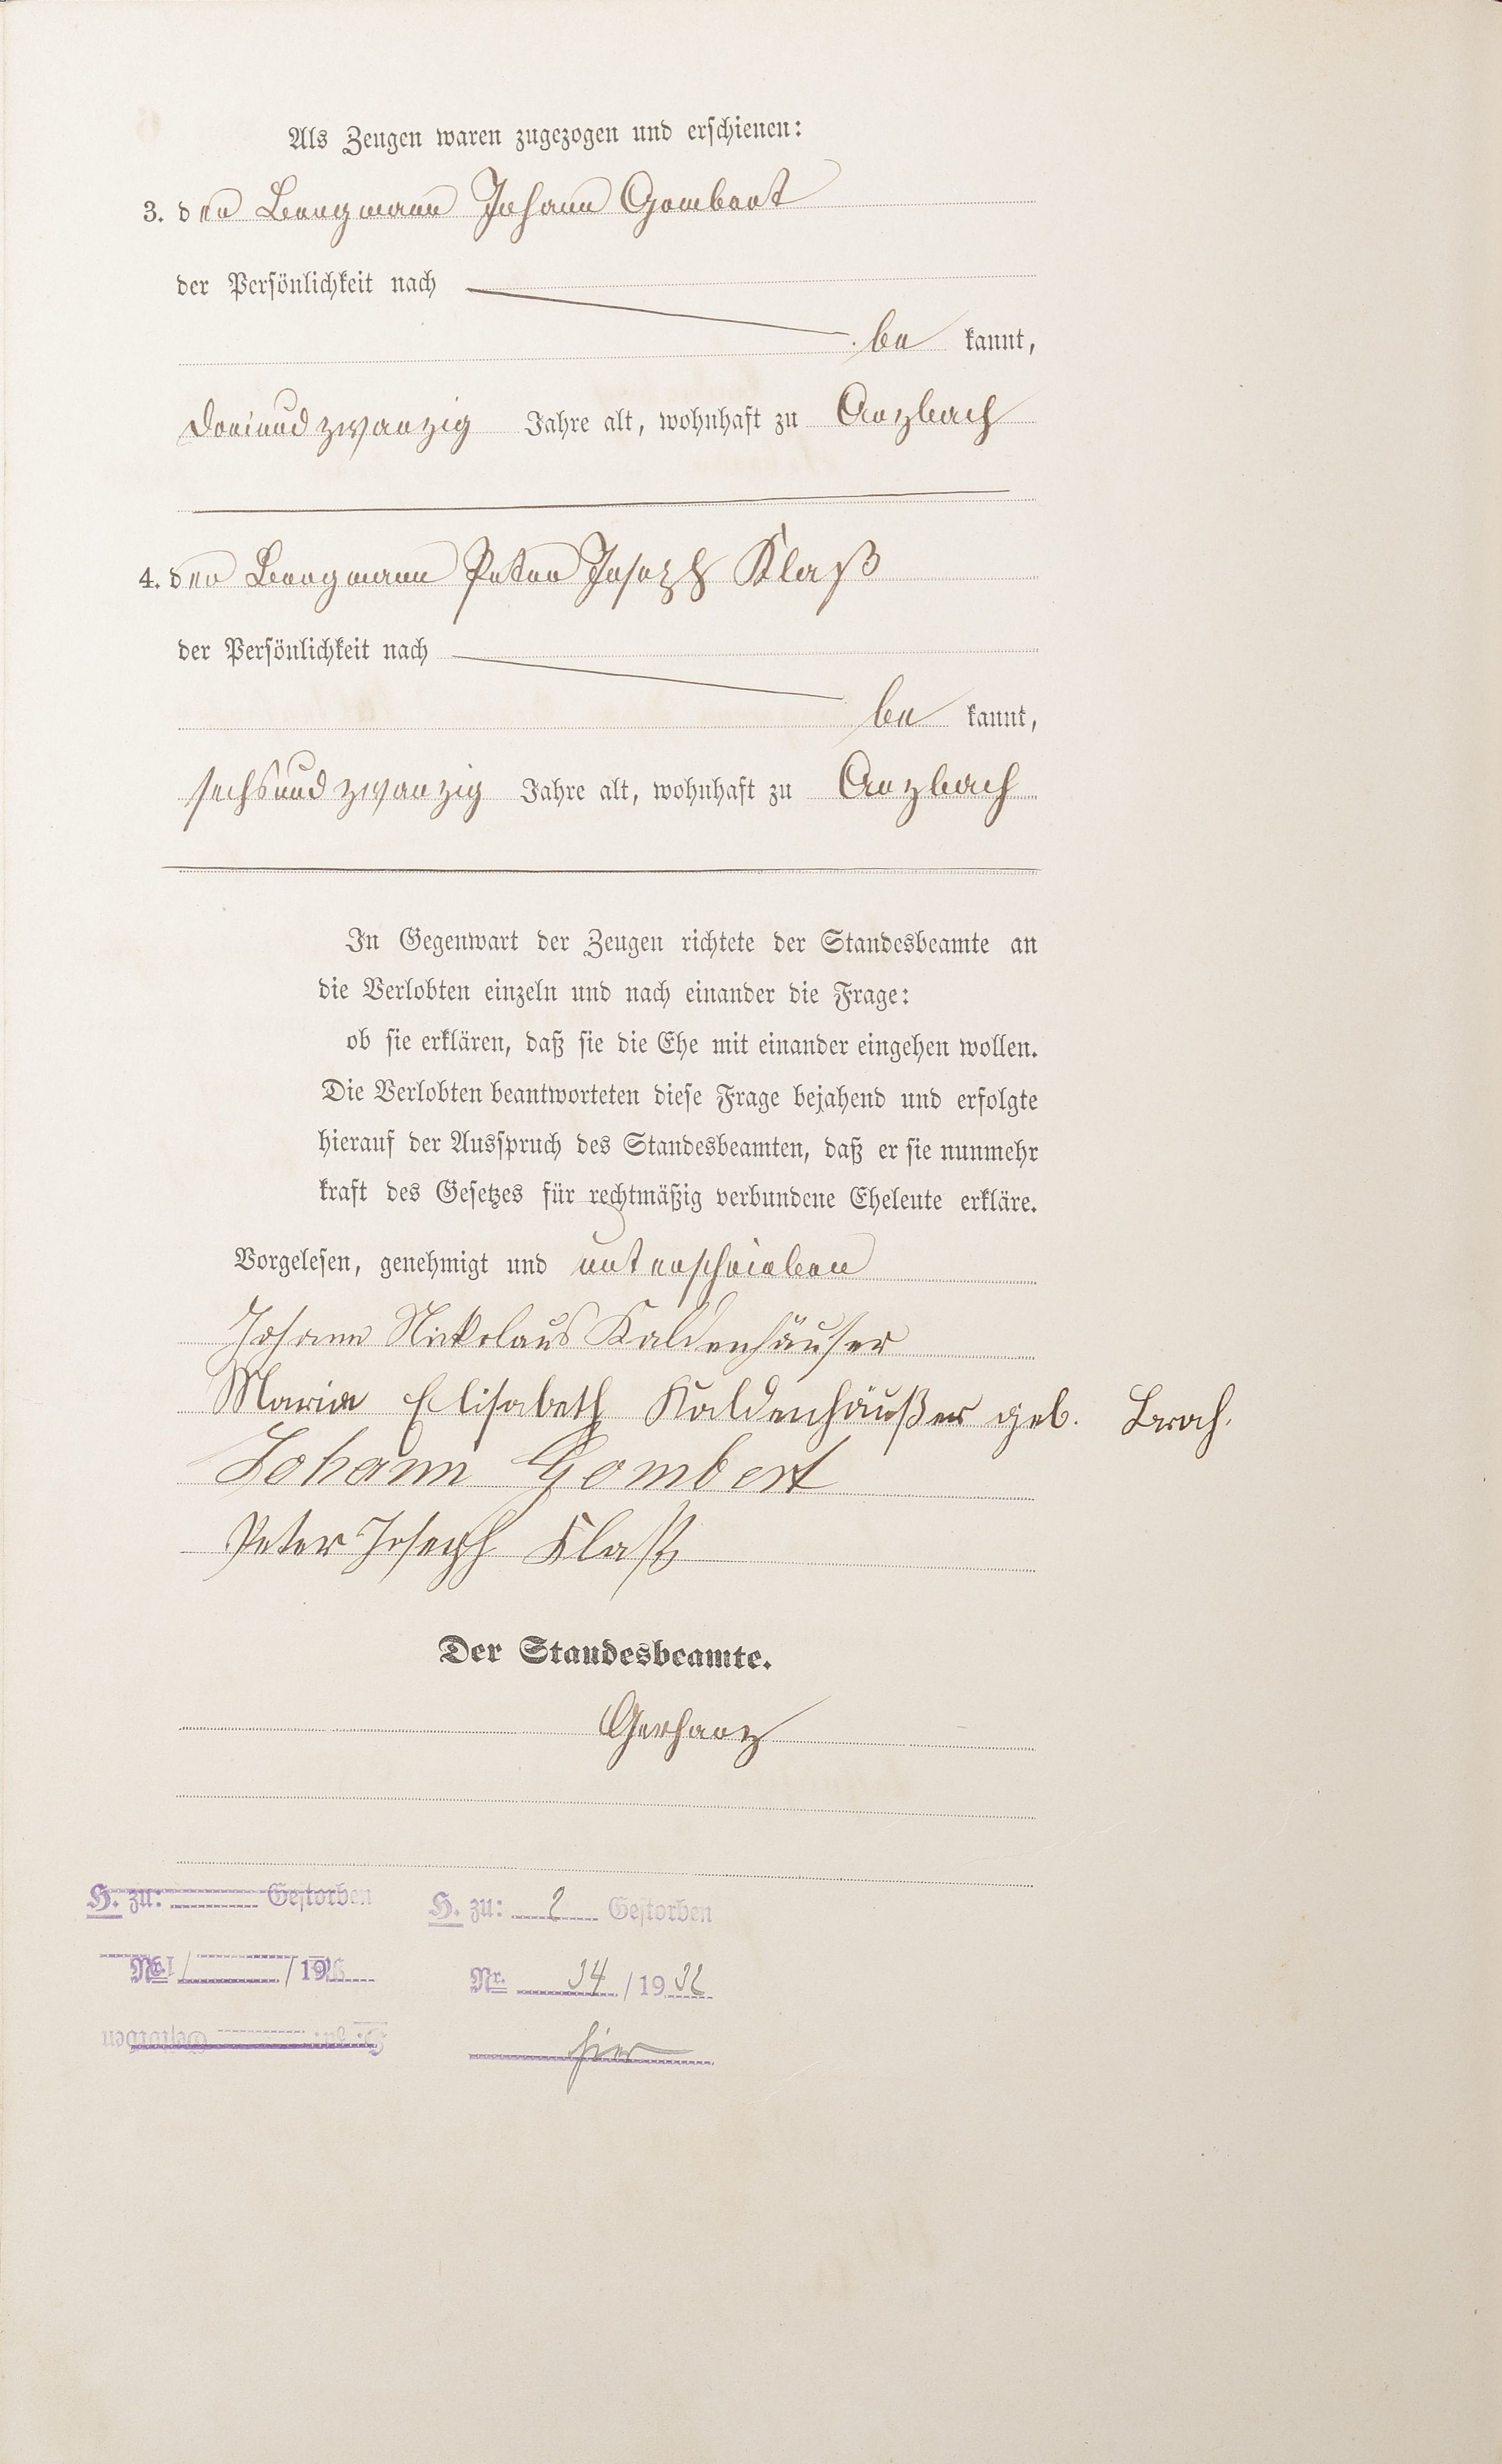 Als Zeugen waren zugezogen und erschienen:
3. der Bergmann Johann Gombert
der Persönlichkeit nach
be kannt,
dreiundzwanzig Jahre alt, wohnhaft zu Arzbach
4. der Bergmann Peter Joseph Klaß
der Persönlichkeit nach
be kannt,
sechsundzwanzig Jahre alt, wohnhaft zu Arzbach
In Gegenwart der Zeugen richtete der Standesbeamte an
die Verlobten einzeln und nach einander die Frage:
ob sie erklären, daß sie die Ehe mit einander eingehen wollen.
Die Verlobten beantworteten diese Frage bejahend und erfolgte
hierauf der Ausspruch des Standesbeamten, daß er sie nunmehr
kraft des Gesetzes für rechtmäßig verbundene Eheleute erkläre.
Vorgelesen, genehmigt und unterschrieben
Johann Nickolaus Kaldenhäuser
Maria Elisabeth Kaldenhäußer geb. Brach.
Johann Gombert
Peter Joseph Klaß
Der Standesbeamte.
Gerharz
H. zu: Gestorben H. zu: 2 Gestorben
Nr. / 19 Nr. 34 / 19 32
hier